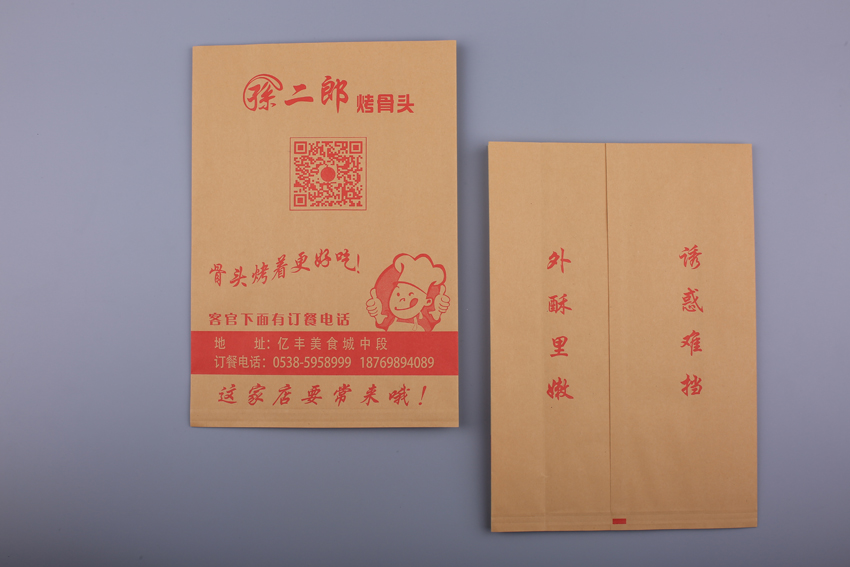 孫二郎 烤骨头
骨头烤着更好吃!
客官下面有订餐电话
地 址:亿丰美食城中段
订餐电话:0538-5958999 18769894089
这家店要常来哦!
外酥里嫩
诱惑难挡